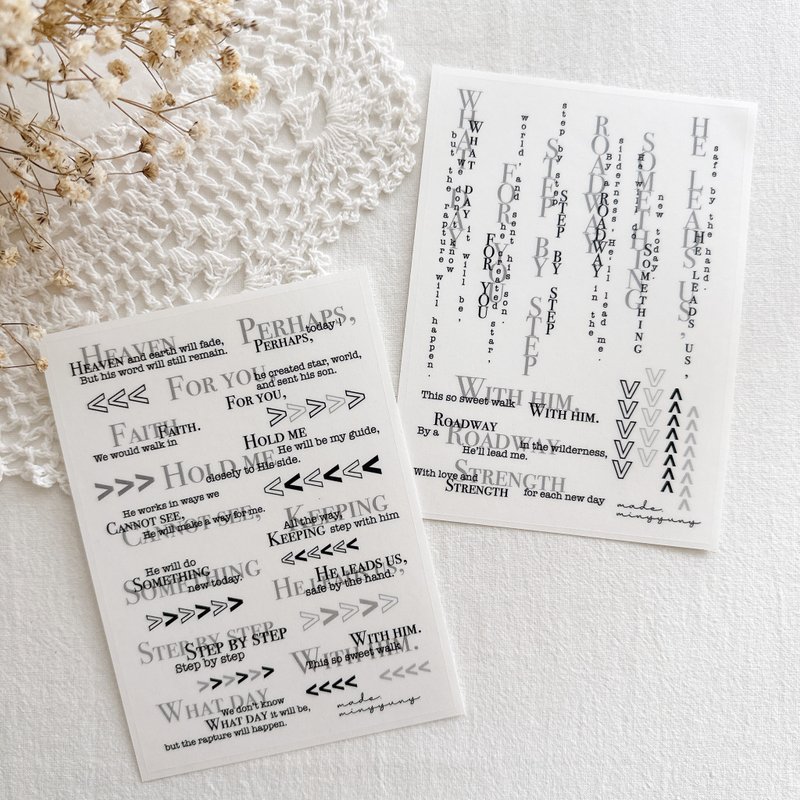 HEAVEN
HEAVEN and earth will fade,
But his word will still remain.
PERHAPS,
today!
PERHAPS,
FOR YOU
he created star, world,
and sent his son.
FOR YOU,
FAITH
FAITH.
We would walk in
HOLD ME
HOLD ME
He will be my guide,
closely to His side.
He works in ways we
CANNOT SEE,
CANNOT SEE,
He will make a way for me.
KEEPING
All the way,
KEEPING step with him
SOMETHING
He will do
SOMETHING
new today.
HE LEADS US,
HE LEADS US,
safe by the hand.
STEP BY STEP
STEP BY STEP
Step by step
WITH HIM.
WITH HIM.
This so sweet walk
WHAT DAY
We don't know
WHAT DAY it will be,
but the rapture will happen.
made.
mingyuny
WHAT DAY
we don't know
WHAT DAY it will be,
but the rapture will happen.
FOR YOU
FOR YOU
he created star,
world, and sent his son
STEP BY STEP
STEP BY STEP
step by step
ROADWAY
By a
ROADWAY in the
silderness, He'll lead me.
SOMETHING
He will do
SOMETHING
new today.
HE LEADS US,
HE LEADS US,
safe by the hand.
WITH HIM.
This so sweet walk WITH HIM.
ROADWAY
By a ROADWAY In the wilderness,
He'll lead me.
STRENGTH
With love and
STRENGTH for each new day
made.
mingyuny